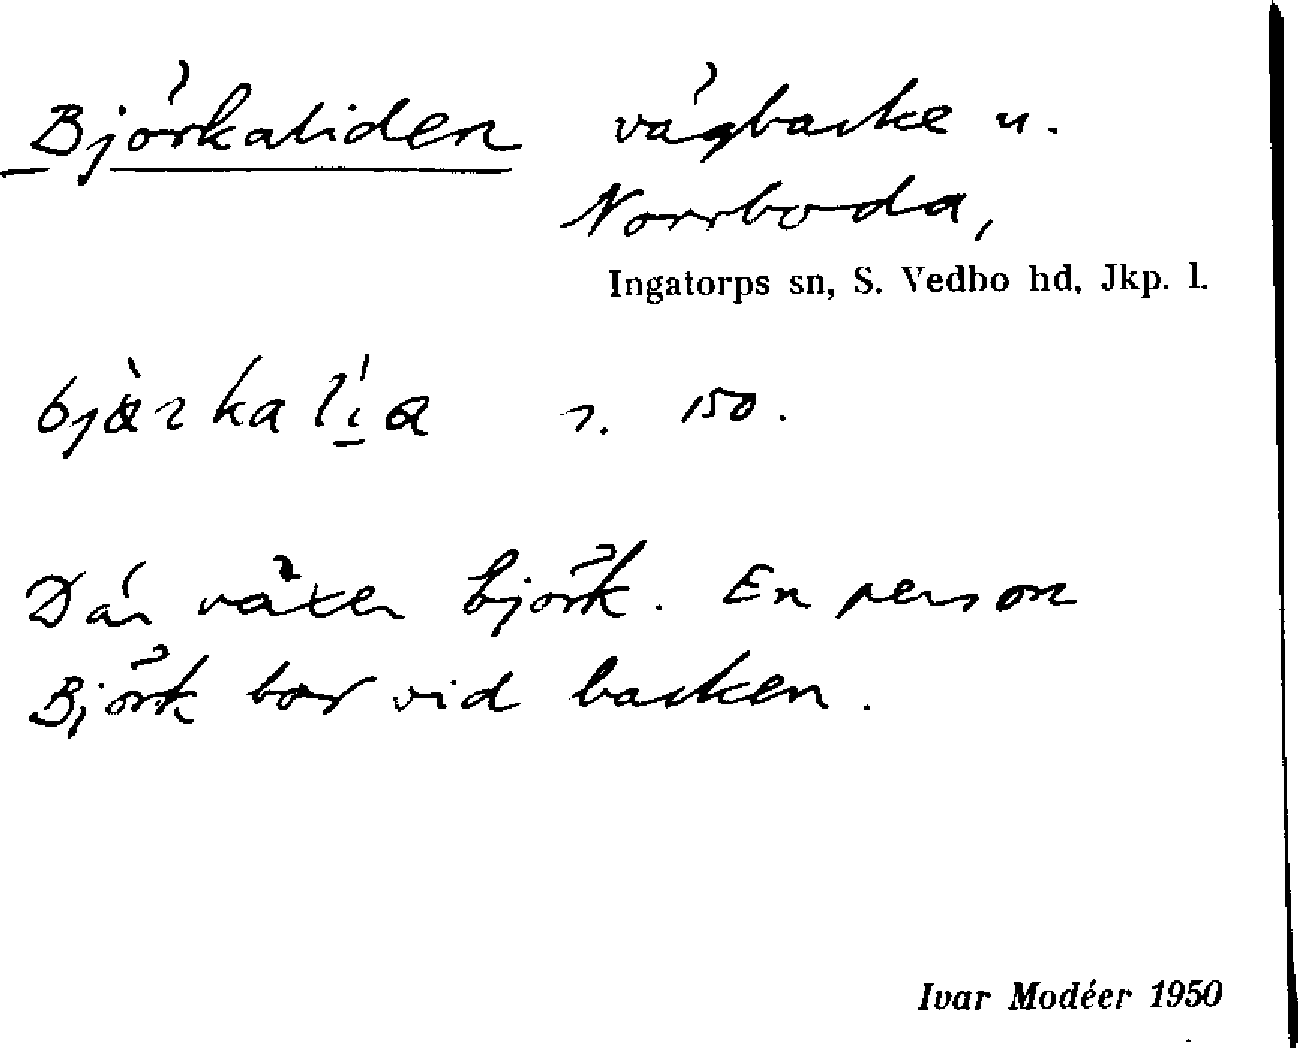 Björkaliden vägbacke n.
Norrboda,
Ingatorps sn, S. Vedbo hd, Jkp. l.
s. 150.
Där växer björk. En person
Björk bor vid backen.
Ivar Modéer 1950